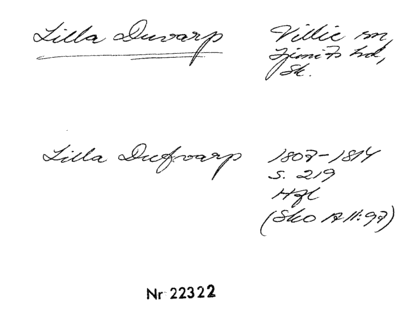 Lilla Duvarp Villie sn,
Ljunits hd,
Sk.
Lilla Dufvarp 1807-1814
S. 219
Hfl
(Sko A II:97)
Nr 22322